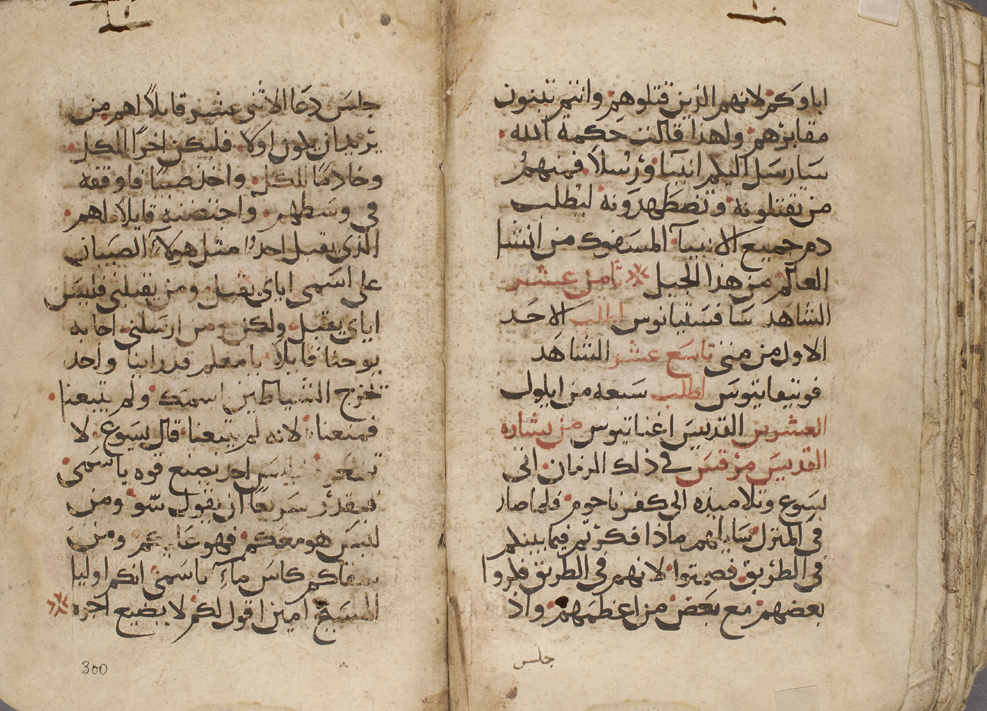 اباوكم لانهم الذين قتلوهم وانتم تبنون
مقابرهم ولهذا قالت حكمة الله
سارسل اليكم انبيآ ورسلا فمنهم
من يقتلونه وتضطهدونه ليطلب
دم جميع الانبيآ المسفوك من انشا
العالم من هذا الجيل ثامن عشر
الشاهد سافستيانوس اطلب الاحد
الاول من متى تاسع عشر الشاهد
فوتيفاتيوس اطلب سبعه من ايلول
العشرين القديس اغناتيوس من بشارة
القديس مرقس في ذلك الزمان اتى
يسوع وتلاميذه الى كفرناحوم فلما صار
في المنزل سايلهم ماذا فكرتم فيما بينكم
في الطريق فصمتوا لانهم في الطريق فكروا
بعضهم مع بعض من اعظمهم واذ
جلس
جلس دعا الاثنى عشر قايلا لهم من
يريد ان يكون اولا فليكن اخرا للكل
وخادما للكل واخذ صبيا فاوقفه
في وسطهم واحتضنه قايلا لهم
الذي يقبل احدا مثل هولآ الصبيان
على اسمى اياى يقبل ومن يقبلنى فليس
اياى يقبل ولكن ومن ارسلنى اجابه
يوحنا قايلا يا معلم قد راينا واحد
تخرج الشياطين اسمك ولم يتبعنا
فمنعنا لانه لم يتبعنا قال يسوع لا
ليس احد يصنع قوه باسمى
سريعا ان يقول سو ومن
ليس هو معكم فهو عليكم ومن
سقاكم كاس مآء باسمى انكم اوليا
المسيح امين اقول لكم لا يضيع اجره
300